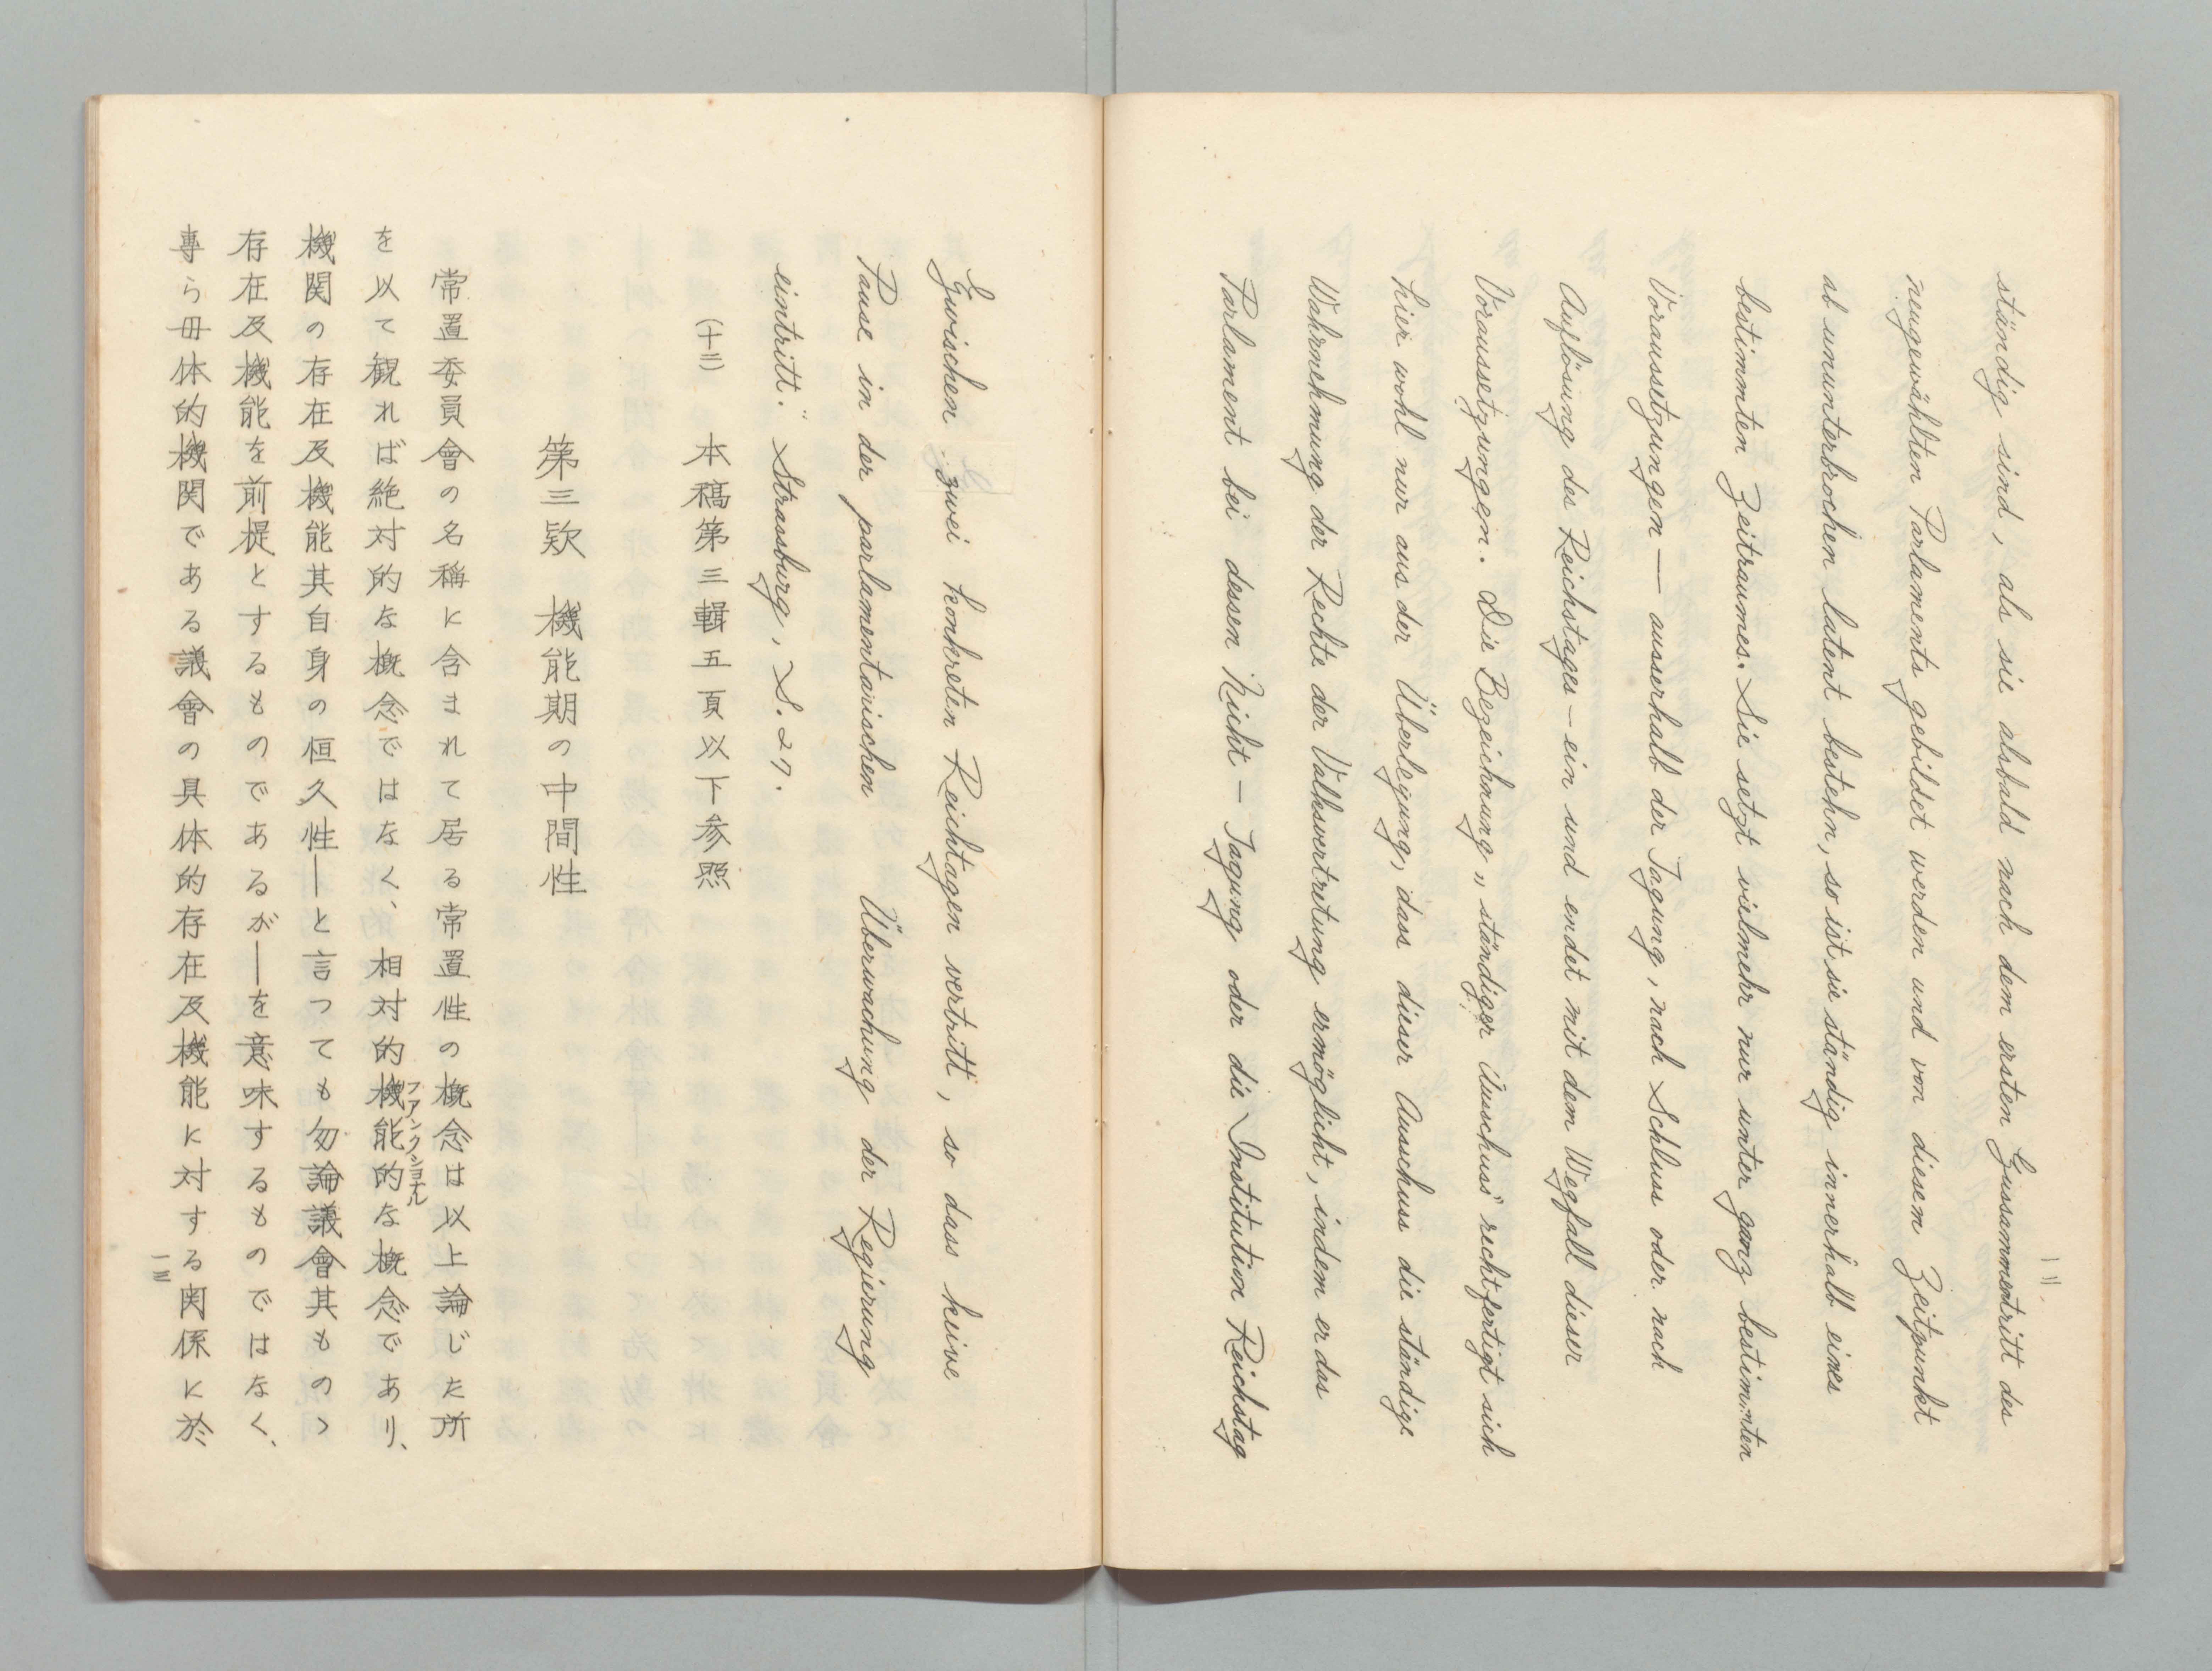 一二
ständig sind, als sie alsbald nach dem ersten Zusammentritt des
neugewählten Parlaments gebildet werden und von diesem Zeitpunkt
ab ununterbrochen latent bestehn, so ist sie ständig innerhalb eines
bestimmten Zeitraumes. Sie setzt vielmehr nur unter ganz bestimmten
Voraussetzungen — ausserhalb der Tagung, nach Schluss oder nach
Auflösung des Reichstages — ein und endet mit dem Wegfall dieser
Voraussetzungen. Die Bezeichnung „ständiger Ausschuss" rechtfertigt sich
hier wohl nur aus der Überlegung, dass dieser Ausschuss die ständige
Wahrnehmung der Rechte der Volksvertretung ermöglicht, indem er das
Parlament bei dessen Nicht — Tagung oder die Institution Reichstag
Zwischen zwei konkreten Reichtagen vertritt, so dass keine
Pause in der parlamentarischen Überwachung der Regierung
eintritt." Strassburg, S. 27.
(十二) 本稿第三輯五頁以下参照
第三欵 機能期の中間性
常置委員會の名稱に含まれて居る常置性の概念は以上論じた所
を以て観れば絶対的な概念ではなく、相対的機能的な概念であり、
ファンクショナル
機関の存在及機能其自身の恒久性──と言つても勿論議會其ものゝ
存在及機能を前提とするものであるが──を意味するものではなく、
專ら母体的機関である議會の具体的存在及機能に対する関係に於
一三